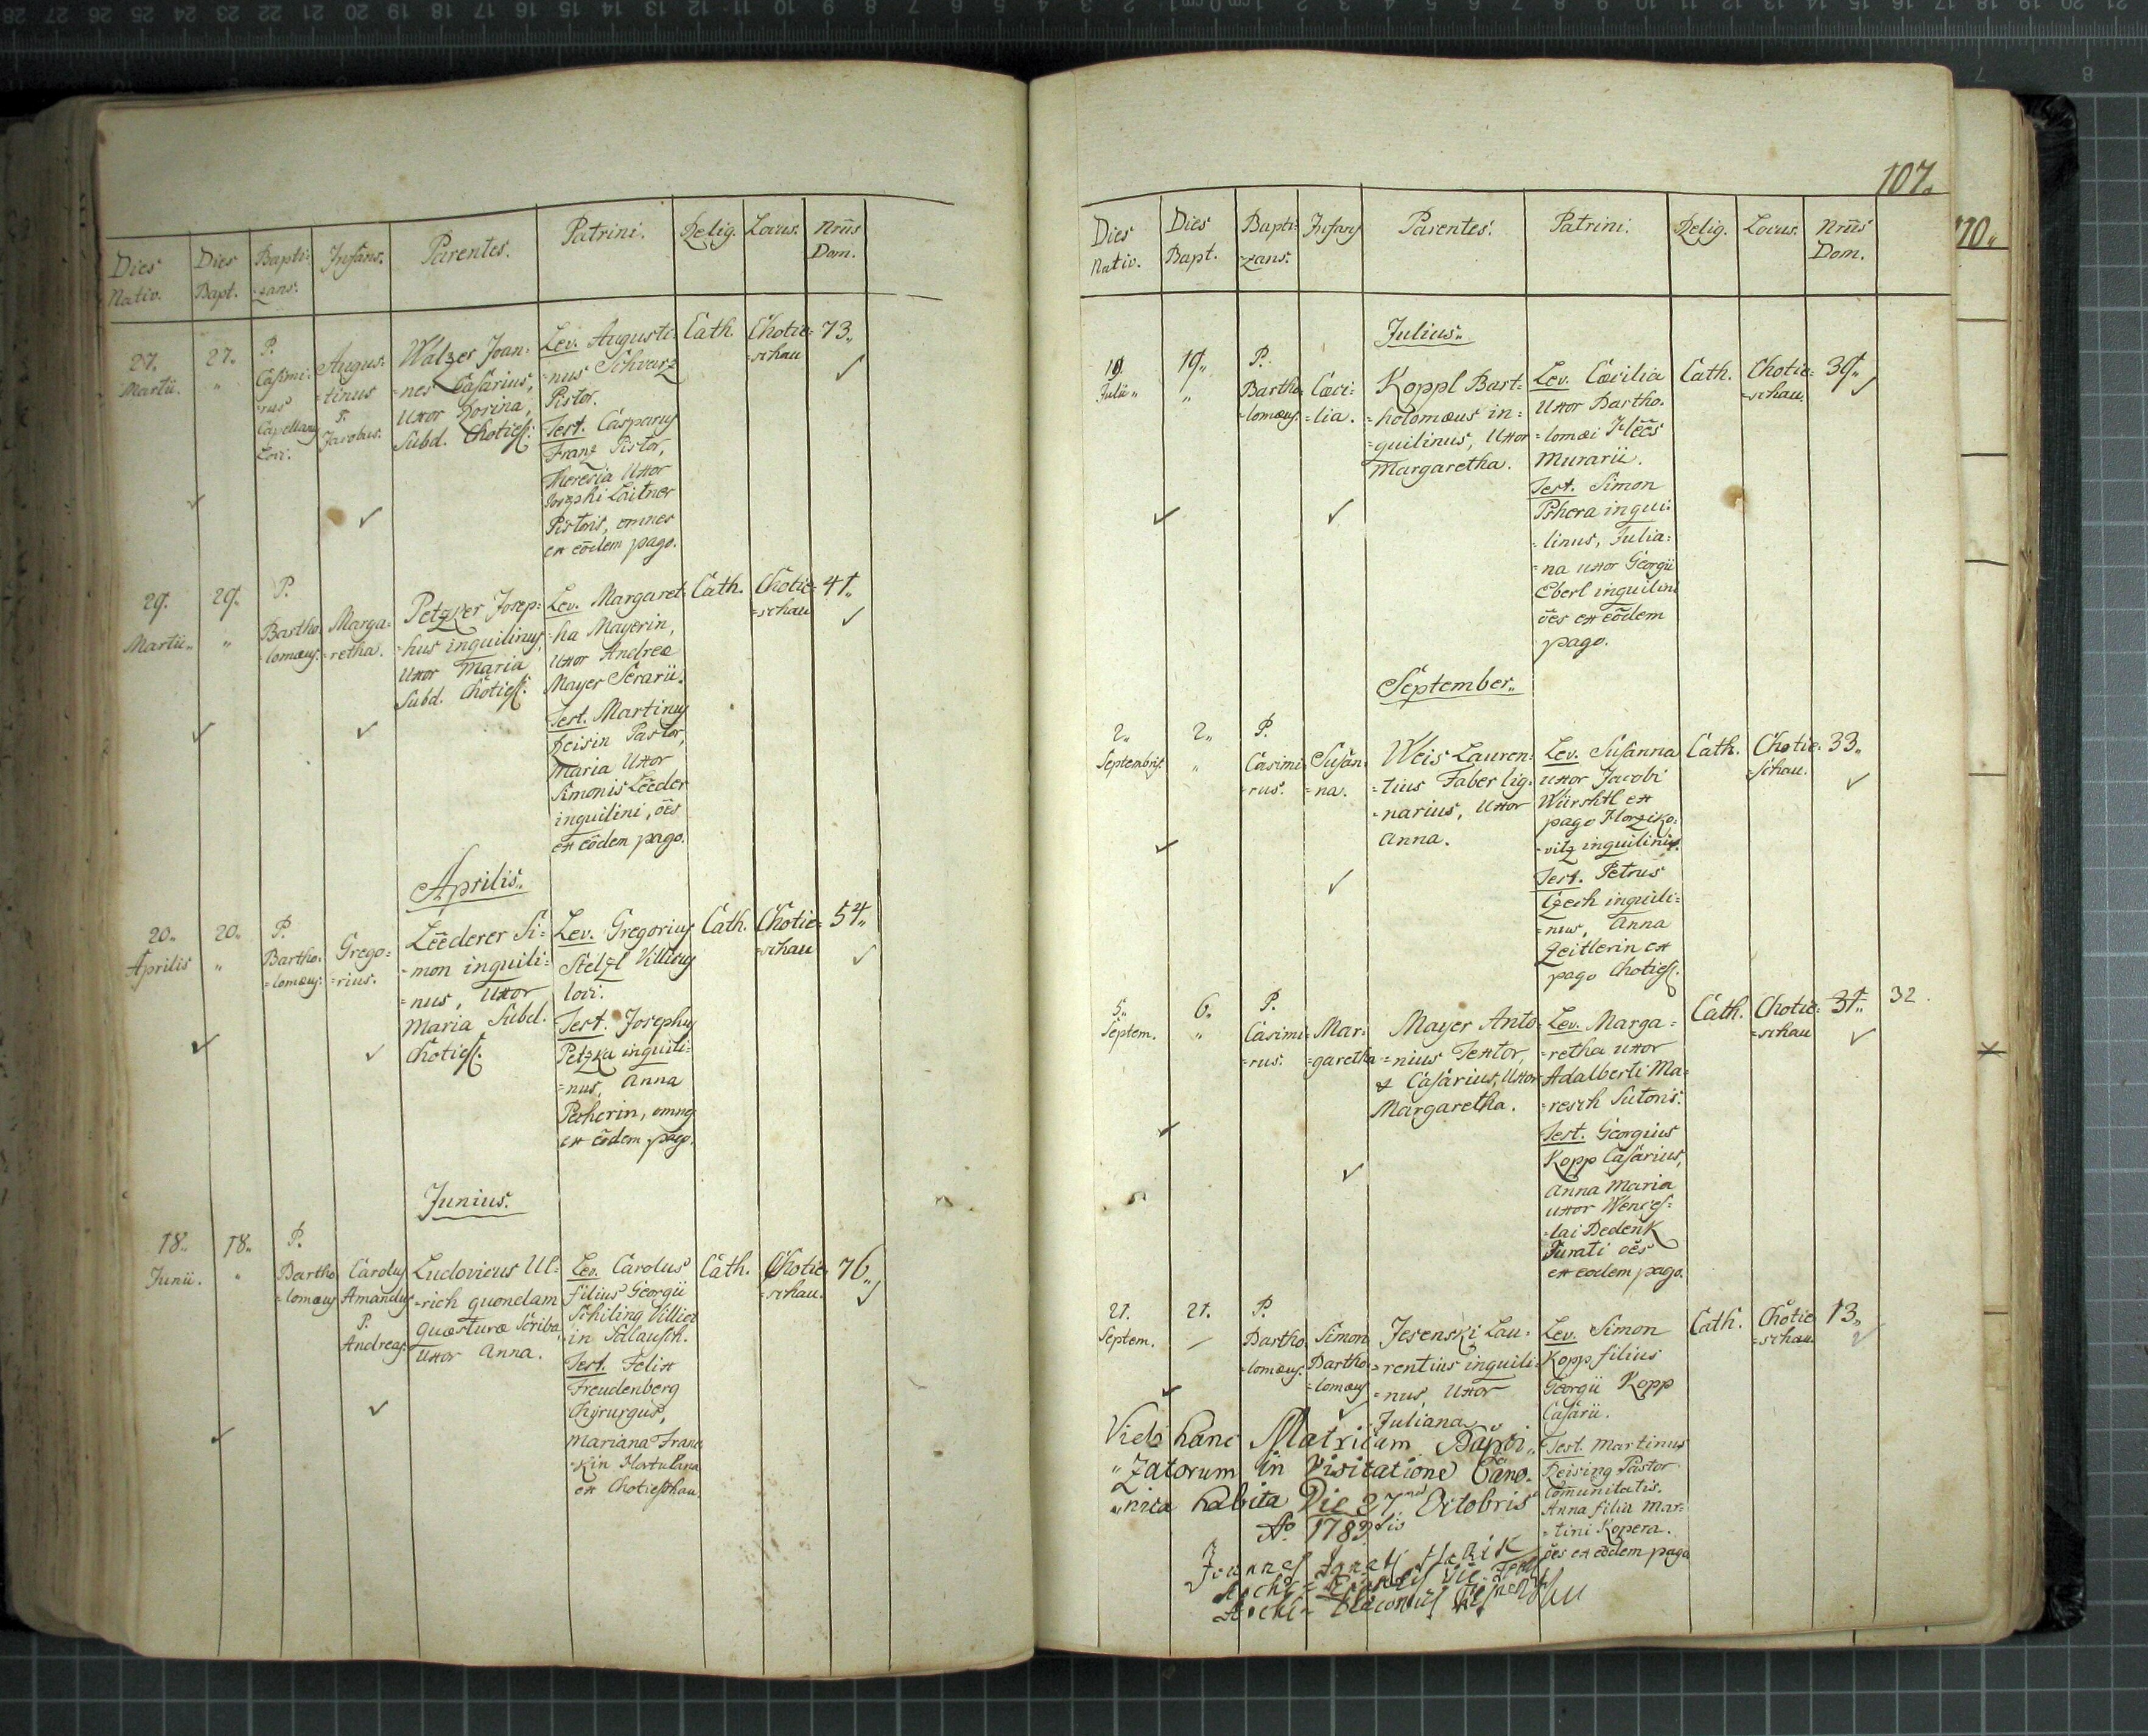 Dies Nativ. Dies Bapt. Bapti=zans. Infans. Parentes. Patrini. Relig. Locus. Nrus Dom.
27. Martii. 27. „
P. Casimi=rus Capellany Loci.
Augus=tinus P. Jacobus.
Walzer Joan=
=nes Casarius,
Uxor Rosina,
Subd. Chotieſ:
Lev. Augusti=
=nus Schvarz
Pistor.
Test. Caspary
Franz Pistor,
Theresia Uxor
Josephi Laitner
Pistoris, omnes
ex eodem pago.
Cath. Chotie=schau 73„
29. Martii„ 29. „
P. Bartho=lomæus.
Marga=retha.
Petzker Josep=
=hus inquilinus,
Uxor Maria
Subd. Chotieſ:
Lev. Margaret=
=ha Mayerin,
Uxor Andreæ
Mayer Serarii.
Test. Martinus
Reisin Pastor,
Maria Uxor
Simonis Lēeder
inquilini, oēs
ex eōdem pago.
Cath. Chotie=schau 41„
Aprilis„
20„ Aprilis 20„ „
P. Bartho=lomæus.
Grego=rius.
Lēederer Si=
=mon inquili=
=nus, Uxor
Maria Subd.
Chotieſ:
Lev. Gregorius
Stelzl Villicus
loci.
Test. Josephus
Petzka inquili=
=nus, Anna
Pscherin, omnes
ex eōdem pago.
Cath. Chotie=schau 54„
Junius.
18„ Junii. 18„ „
P. Bartho=lomæus
Carolus Amandus P. Andreas.
Ludovicus Ul=
=rich quondam
Quæsturæ Scriba,
Uxor Anna.
Lev. Carolus
filius Georgii
Schiling Villici
in
Test. Felix
Freudenberg
Chyrurgus,
Mariana Fran=
=kin Hortulana
ex Chotieschau.
Cath. Chotie=schau. 76„
107.
110„
Dies Nativ. Dies Bapt. Bapti=zans. Infans Parentes. Patrini. Relig. Locus. Nrus Dom.
Julius„
19. Julii„ 19„ „
P. Bartho=lomæus.
Cæci=lia.
Koppl Bart=
=holomæus in=
=quilinus, Uxor
Margaretha.
Lev. Cæcilia
Uxor Bartho=
=lomæi Klēes
Murarii.
Test. Simon
Pshera inqui=
=linus, Julia=
=na uxor Georgii
Eberl inquilini
ōes ex eōdem
pago.
Cath. Chotie=schau 39„
September„
2„ Septembris. 2„ „
P. Casimi=rus.
Susan=na.
Weis Lauren=
=tius Faber lig=
=narius, Uxor
Anna.
Lev. Susanna
uxor Jacobi
Würshtl ex
pago Horziko=
=vitz inquilinis.
Test. Petrus
Czech inquili=
=nus, Anna
Zeitlerin ex
pago Chotieſ:
Cath. Chotie=schau. 33„
5„ Septem. 6„ „
P. Casimi=rus.
Mar=garetha
Mayer Anto=
=nius Textor,
& Casarius, Uxor
Margaretha.
Lev. Marga=
=retha uxor
Adalberti Ma=
=resch Sutoris.
Test. Georgius
Kopp Casarius,
Anna Maria
uxor Wences=
=lai Dedek
Jurati oēs
ex eodem pago.
Cath. Chotie=schau 31„ 32.
21. Septem. 21.
P. Bartho=lomæus.
Simon Bartho=lomæus
Jesenski Lau=
=rentius inquili=
=nus, Uxor
Juliana.
Lev. Simon
Kopp filius
Georgii Kopp
Casarii.
Test. Martinus
Reising Pastor
Com̄unitatis.
Anna filia Mar=
=tini Kopera.
ōes ex eōdem pago.
Cath. Chotie=schau 13„
Vidi hanc Matricam Bapti„
„zatorum in Visitatione Cano„
„nica habita Die 27ma Octobris
Ao 1783tio